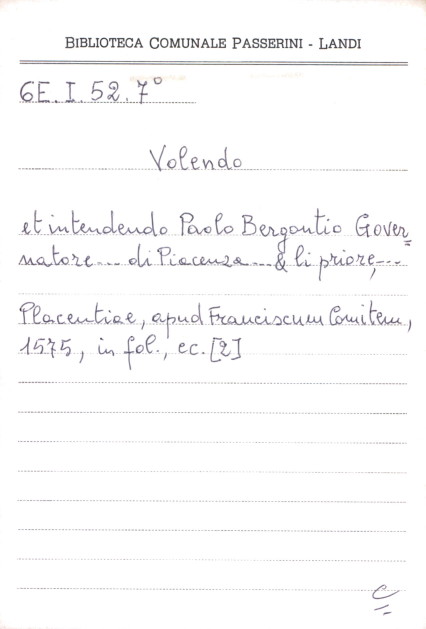 BIBLIOTECA COMUNALE PASSERINI - LANDI
6E.I.52.7°
Volendo
et intendendo Paolo Bergontio Gover=
natore.... di Piacenza....& li priore,...
Placentiae, apud Franciscum Comitem,
1575, in fol., ec.[2]
C